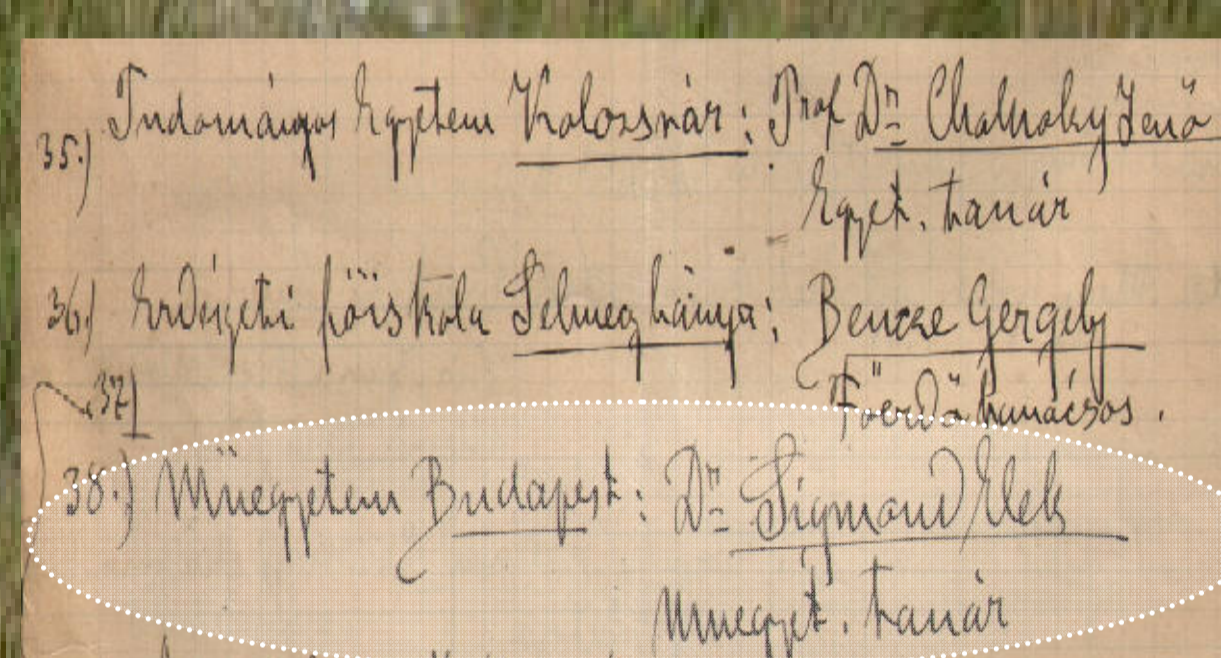 35.) Tudományos Egyetem Kolozsvár: Prof Dr. Cholnoky Jenő
Egyet. tanár
36.) Erdészeti főiskola Selmeczbánya: Bencze Gergely
Főerdőtanácsos.
37)
38.) Műegyetem Budapest: Dr. Sigmond Elek
műegyet. tanár